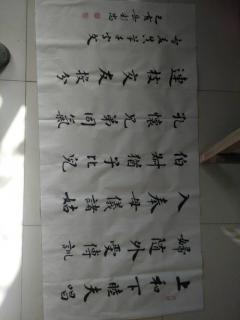 上和下睦夫唱
婦隨外受傅訓
入奉母儀諸姑
伯叔猶子比兒
孔懷兄弟同氣
連枝交友投分
千字文